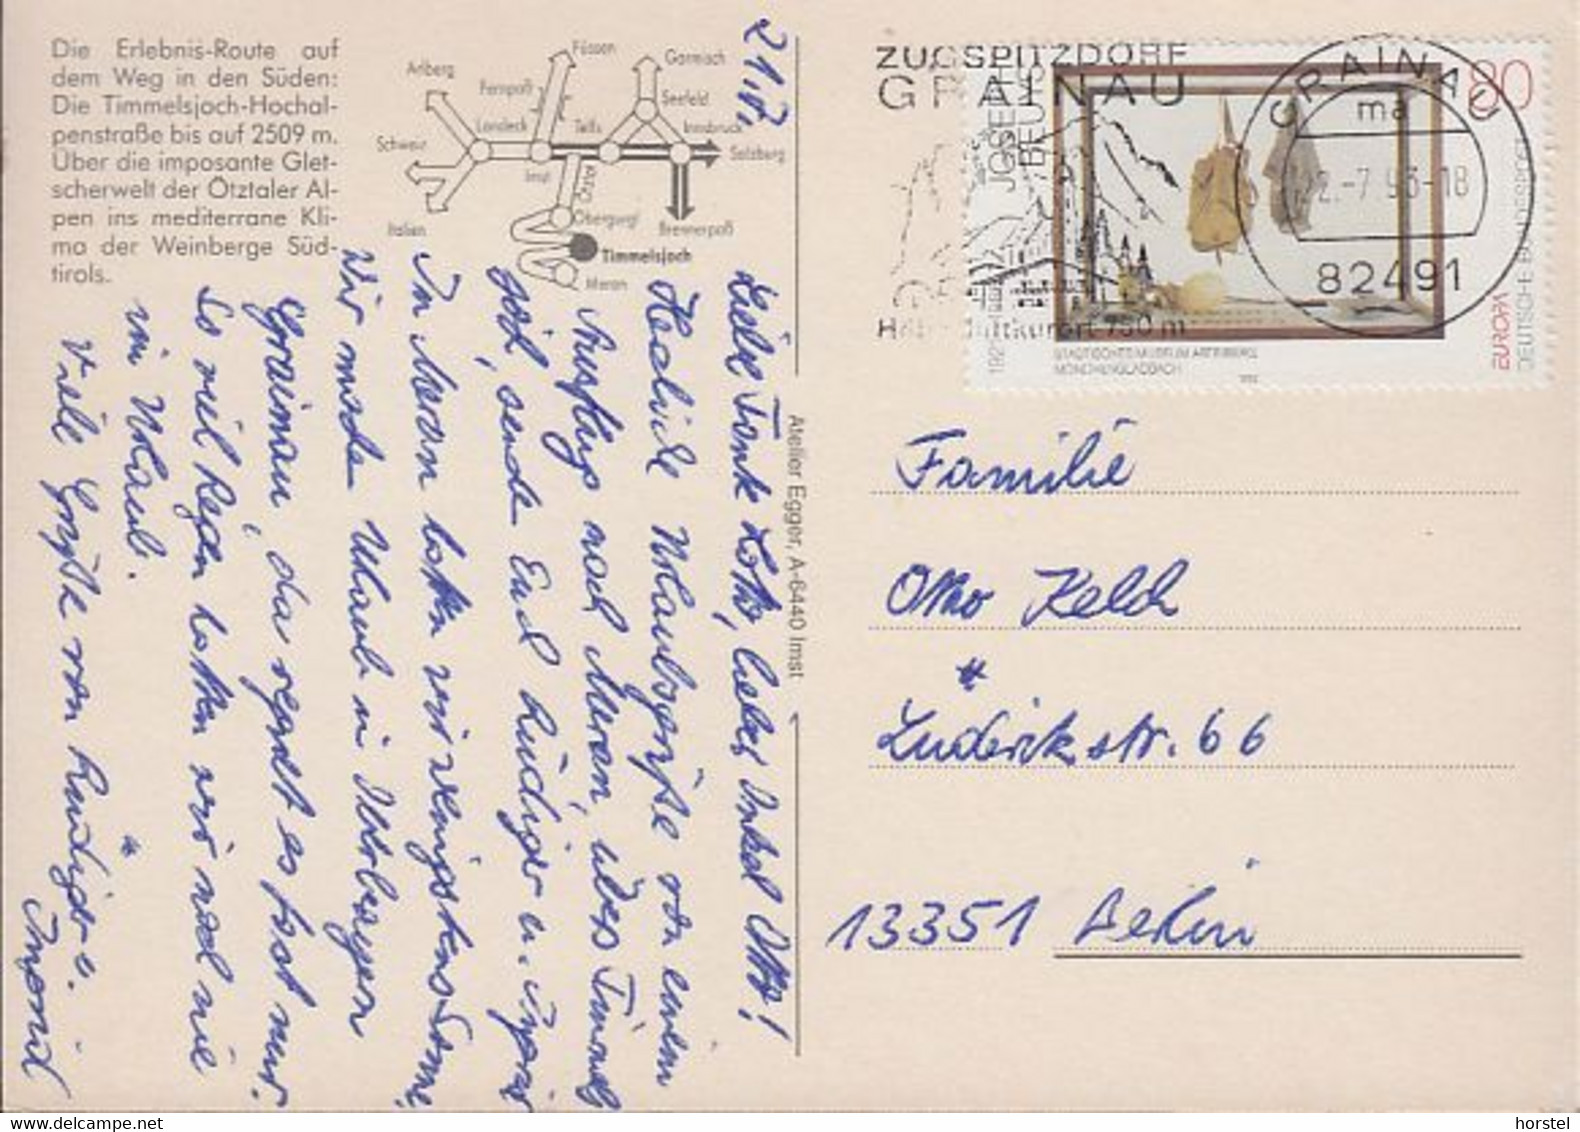 Die Erlebnis-Route auf
dem Weg in den Süden:
Die Timmelsjoch-Hochal-
penstraße bis auf 2509 m.
Über die imposante Glet-
scherwelt der Ötztaler Al-
pen ins mediterrane Kli-
ma der Weinberge Süd-
tirols.
Füssen
Arlberg
Garmisch
Fernpaß
Seefeld
Landeck
Telfs
Innsbruck
Schweiz
Salzburg
Imst
Ötztal
Obergurgl
Italien
Brennerpaß
Timmelsjoch
Meran
21.7.
Liebe Tante Lotte, lieber Onkel Otto!
Herzliche Urlaubsgrüße von einem
Ausflug nach Meran, übers Timmels
joch, senden Euch Rüdiger u. Ingrid
In Meran hatten wir wenigstens Sonne,
Wir machen Urlaub in Oberbayern
Grainau, da regnet es fast nur.
So viel Regen hatten wir noch nie
im Urlaub.
Viele Grüße von Rüdiger u.
Ingrid
Atelier Egger, A-6440 Imst
ZUGSPITZDORF
GRAINAU
GRAINAU
ma
2.-7.93-18
82491
80
JOSEPH
BEUYS
STÄDTISCHES MUSEUM ABTEIBERG
MÖNCHENGLADBACH
EUROPA
DEUTSCHE BUNDESPOST
Familie
Otto Kelch
Lüderitzstr. 66
13351 Berlin
horstel